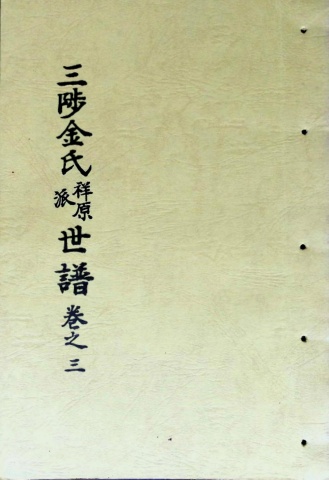 三陟金氏祥原派世譜 卷之三